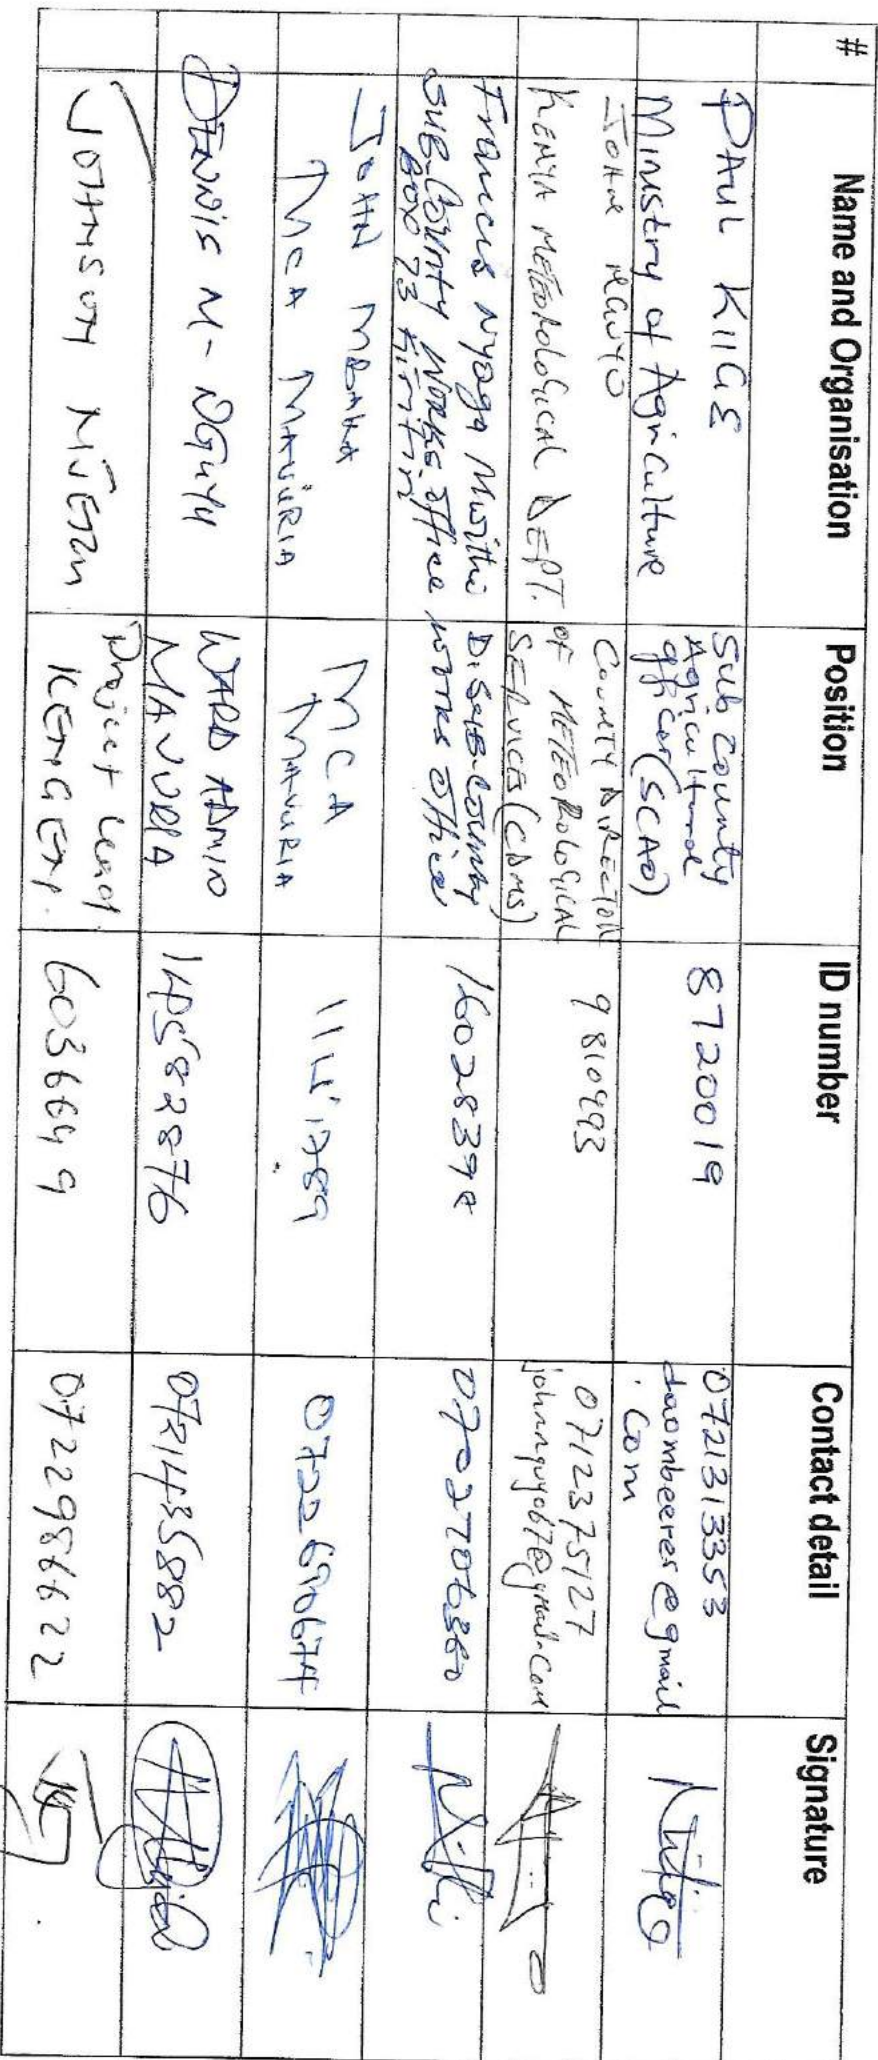 # Name and Organisation Position ID number Contact detail Signature
PAUL KIIGE
Ministry of Agriculture
Sub County
Agricultural
officer (SCAO)
8720019
0721313353
daombeere@gmail
.com
JOHN NGUYO
KENYA METEOROLOGICAL DEPT.
COUNTY DIRECTOR
OF METEOROLOGICAL
SERVICES (CDMS)
9810993
0712375127
johnnguyo67@gmail.com
Francis Nyaga Mwithi
SUB-County Works office
BOX 73 Kiritiri
D. SUB-County
works office
0702706360
JOHN MBAKA
MCA MAVURIA
MCA
MAVURIA
0722690674
DENNIS M. NGUYU
WARD ADMIN
MAVURIA
14582876
0721435882
JOHNSON NJERU
Project Lead
KENGEN.
6036649
0722986622